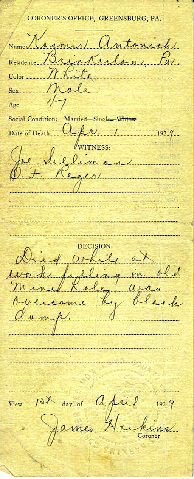 CORONER'S OFFICE, GREENSBURG, PA.
Name Kosmer Antonick
Residence Pa
Color White
Sex Male
Age 47
Social Condition; Married—Single—Widow
Date of Death, Apr 1 1929
WITNESS:
Joe
O F Reger
DECISION
Died while at
work filling in old
Mine Hole, was
overcome by black
damp.
View 1st day of April 1929
James Heckins
Coroner